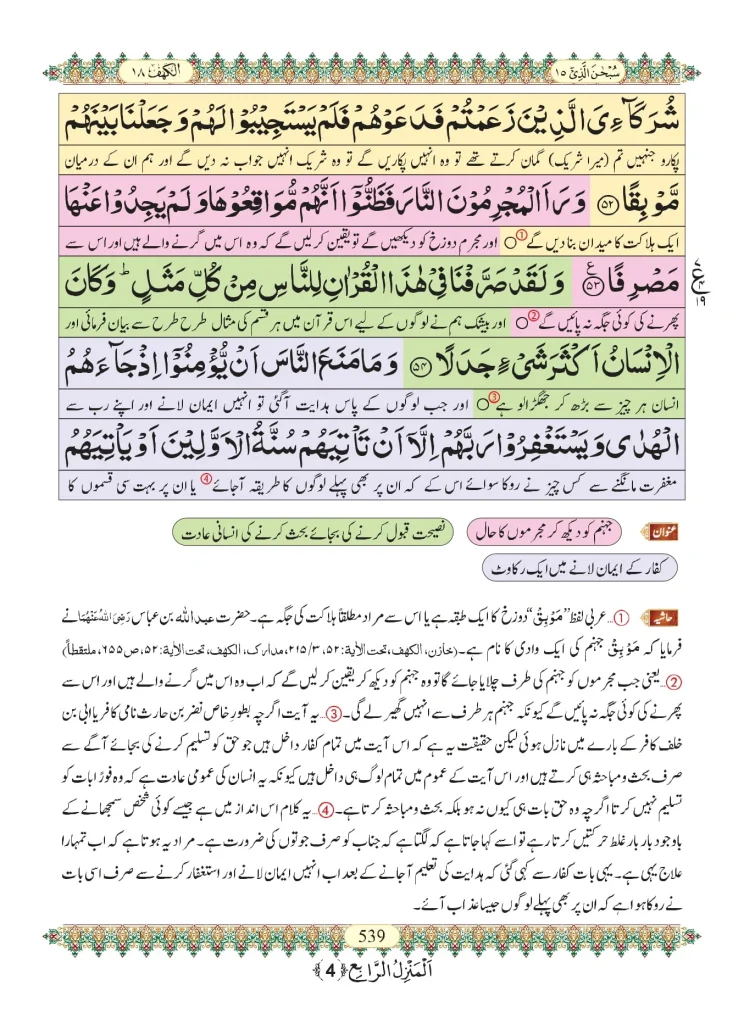 سُبْحٰنَ الَّذِیْۤ ١٥
الکھف ١٨
شُرَكَآءِیَ الَّذِیْنَ زَعَمْتُمْ فَدَعَوْهُمْ فَلَمْ یَسْتَجِیْبُوْا لَهُمْ وَ جَعَلْنَا بَیْنَهُمْ
پکارو جنہیں تم (میرا شریک) گمان کرتے تھے تو وہ انہیں پکاریں گے تو وہ شریک انہیں جواب نہ دیں گے اور ہم ان کے درمیان
مَّوْبِقًا ﴿۵۲﴾ وَ رَاَ الْمُجْرِمُوْنَ النَّارَ فَظَنُّوْۤا اَنَّهُمْ مُّوَاقِعُوْهَا وَ لَمْ یَجِدُوْا عَنْهَا
ایک ہلاکت کا میدان بنا دیں گے① ○ اور مجرم دوزخ کو دیکھیں گے تو یقین کرلیں گے کہ وہ اس میں گرنے والے ہیں اور اس سے
مَصْرِفًا ﴿۵۳﴾ وَ لَقَدْ صَرَّفْنَا فِیْ هٰذَا الْقُرْاٰنِ لِلنَّاسِ مِنْ كُلِّ مَثَلٍؕ وَ كَانَ
پھرنے کی کوئی جگہ نہ پائیں گے② ○ اور بیشک ہم نے لوگوں کے لیے اس قرآن میں ہر قسم کی مثال طرح طرح سے بیان فرمائی اور
الْاِنْسَانُ اَكْثَرَ شَیْءٍ جَدَلًا ﴿۵۴﴾ وَ مَا مَنَعَ النَّاسَ اَنْ یُّؤْمِنُوْۤا اِذْ جَآءَهُمُ
انسان ہر چیز سے بڑھ کر جھگڑالو ہے③ ○ اور جب لوگوں کے پاس ہدایت آگئی تو انہیں ایمان لانے اور اپنے رب سے
الْهُدٰى وَ یَسْتَغْفِرُوْا رَبَّهُمْ اِلَّاۤ اَنْ تَاْتِیَهُمْ سُنَّةُ الْاَوَّلِیْنَ اَوْ یَاْتِیَهُمُ
مغفرت مانگنے سے کس چیز نے روکا سوائے اس کے کہ ان پر بھی پہلے لوگوں کا طریقہ آجائے④ یا ان پر بہت سی قسموں کا
عنوان جہنم کو دیکھ کر مجرموں کا حال نصیحت قبول کرنے کی بجائے بحث کرنے کی انسانی عادت
کفار کے ایمان لانے میں ایک رکاوٹ
حاشیہ ①…عربی لفظ ”مَوْبِقْ“ دوزخ کا ایک طبقہ ہے یا اس سے مراد مطلقاً ہلاکت کی جگہ ہے۔ حضرت عبداللہ بن عباس رَضِیَ اللہُ عَنْہُمَا نے
فرمایا کہ مَوْبِقْ جہنم کی ایک وادی کا نام ہے۔ (خازن، الکھف، تحت الآیة: ۵۲، ۲۱۵/۳، مدارک، الکھف، تحت الآیة: ۵۲، ص۶۵۵، ملتقطاً)
②…یعنی جب مجرموں کو جہنم کی طرف چلایا جائے گا تو وہ جہنم کو دیکھ کر یقین کرلیں گے کہ اب وہ اس میں گرنے والے ہیں اور اس سے
پھرنے کی کوئی جگہ نہ پائیں گے کیونکہ جہنم ہر طرف سے انہیں گھیر لے گی۔ ③…یہ آیت اگرچہ بطورِ خاص نضر بن حارث نامی کافر یا ابی بن
خلف کافر کے بارے میں نازل ہوئی لیکن حقیقت یہ ہے کہ اس آیت میں تمام کفار داخل ہیں جو حق کو تسلیم کرنے کی بجائے آگے سے
صرف بحث و مباحثہ ہی کرتے ہیں اور اس آیت کے عموم میں تمام لوگ ہی داخل ہیں کیونکہ یہ انسان کی عمومی عادت ہے کہ وہ فوراً بات کو
تسلیم نہیں کرتا اگرچہ وہ حق بات ہی کیوں نہ ہو بلکہ بحث و مباحثہ کرتا ہے۔ ④…یہ کلام اس انداز میں ہے جیسے کوئی شخص سمجھانے کے
باوجود بار بار غلط حرکتیں کرتا رہے تو اسے کہا جاتا ہے کہ لگتا ہے کہ جناب کو صرف جوتوں کی ضرورت ہے۔ مراد یہ ہوتا ہے کہ اب تمہارا
علاج یہی ہے۔ یہی بات کفار سے کہی گئی کہ ہدایت کی تعلیم آجانے کے بعد اب انہیں ایمان لانے اور استغفار کرنے سے صرف اسی بات
نے روکا ہوا ہے کہ ان پر بھی پہلے لوگوں جیسا عذاب آئے۔
539
اَلْمَنْزِلُ الرَّابِع ﴿4﴾